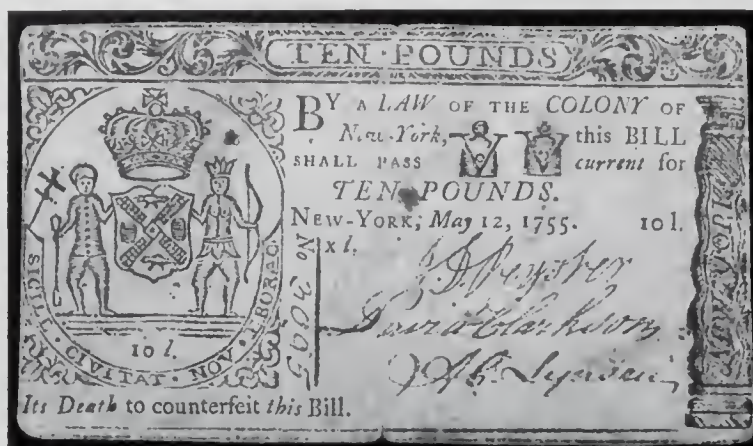 TEN·POUNDS
BY A LAW OF THE COLONY OF
New-York, this BILL
SHALL PASS current for
TEN POUNDS.
NEW-YORK; May 12, 1755. 10 l.
No x l.
David Clarkson
SIGILL · CIVITAT · NOV · EBORAC
10 l.
NEW-YORK
Its Death to counterfeit this Bill.